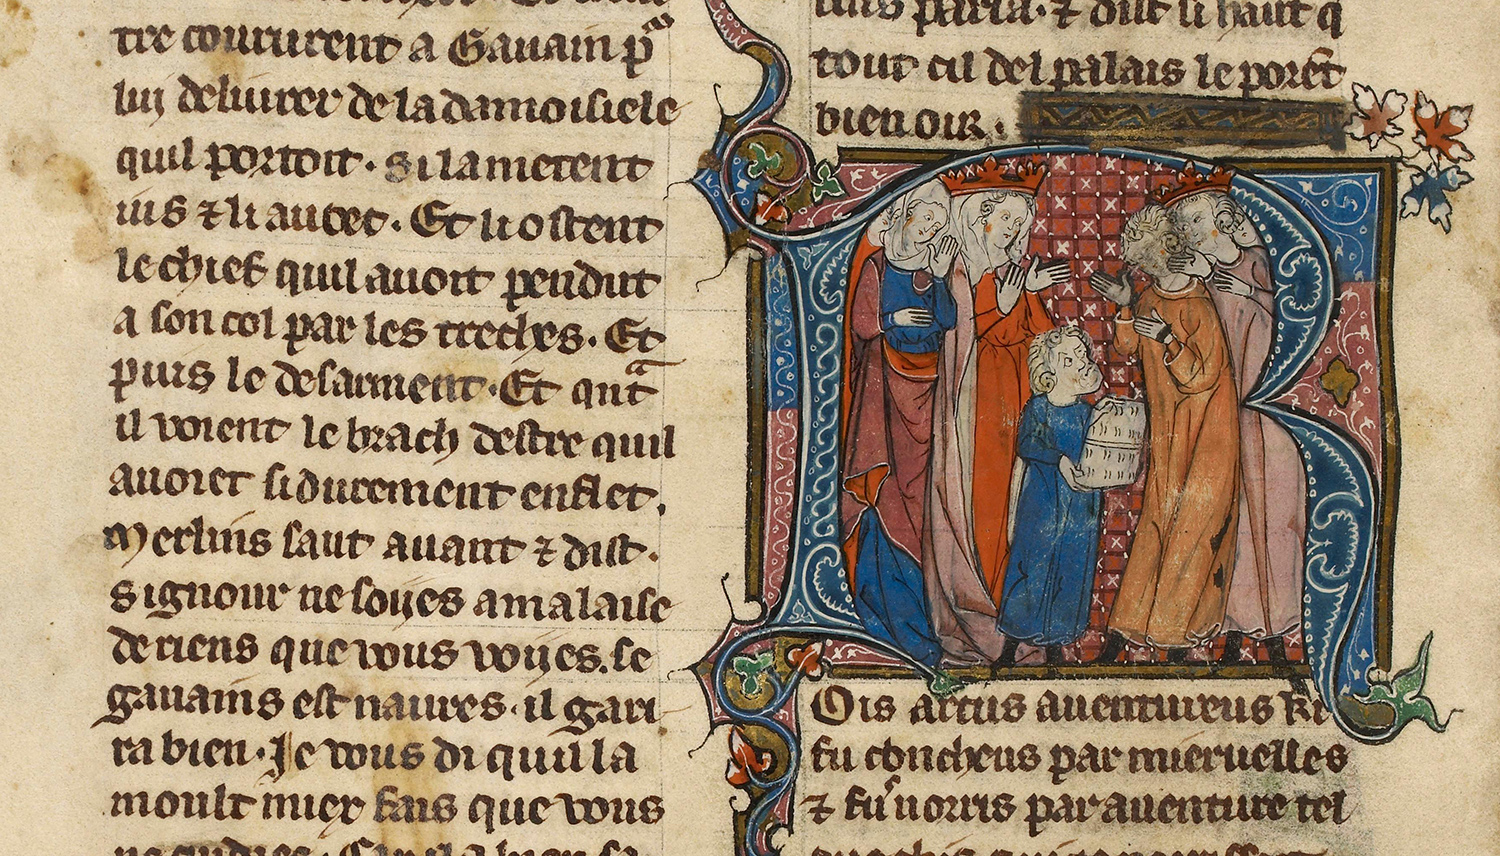 tre coururent a Gauain pͣ
lui deliurer de la damoisiele
quil portoit. Si la metent
ius ⁊ li autre. Et li ostent
le chief quil auoit pendut
a son col par les treches. Et
puis le desarment. Et qͣnt
il voient le brach destre quil
auoiet si durement enflet.
Merlins saut auant ⁊ dist.
Signour ne soijes amalaise
de riens que vous voijes. se
gauains est naures. il gari
ra bien. Je vous di quil la
moult miex fais que vous
parla. ⁊ dist si haut q
tout cil del palais le porẽt
bien oir.
Rois artus auentureus ki
fu concheus par mieruelles
⁊ fu norris par auenture tel